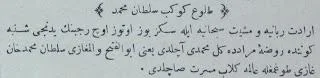 طلوع كوكب سلطان محمد
ارادت ربانيه و مشيت سبحانيه ايله سكز يوز اوتوز اوچ رجبنك يدنجى شنبه
كوننده روضۀ مرادده كل محمدى آچلدى يعنى ابو الفتح والمغازى سلطان محمد خان
غازى طوغمغله عالمه كلاب مسرت صاچلدى .